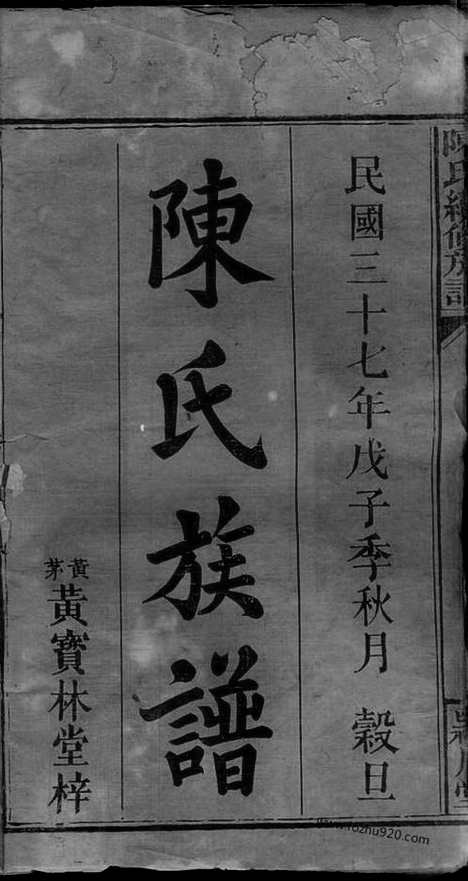 民國三十七年戊子季秋月 穀旦
陳氏族譜
黃茅
黃寶林堂梓
陳氏續修族譜
www.fozhu920.com